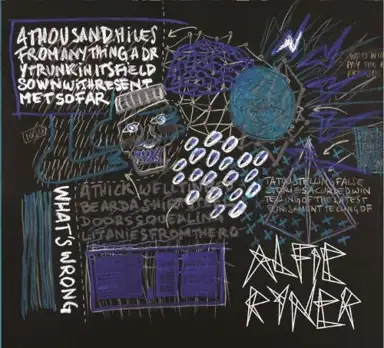 A THOUSAND MILES
FROM ANYTHING A DR
Y TRUNK IN ITS FIELD
SOWN WITH RESENT
MET SO FAR
WHAT'S WRONG
A THICK WELL
BEARD A SHIP
DOORS SQUEALIN
LITANIES FROM THE RO
TATOOS TELLING FALSE
STORIES A CURDED WIN
TELLING OF THE LATEST
PUNISHMENT TELLING OF
ALFIE
RYNER